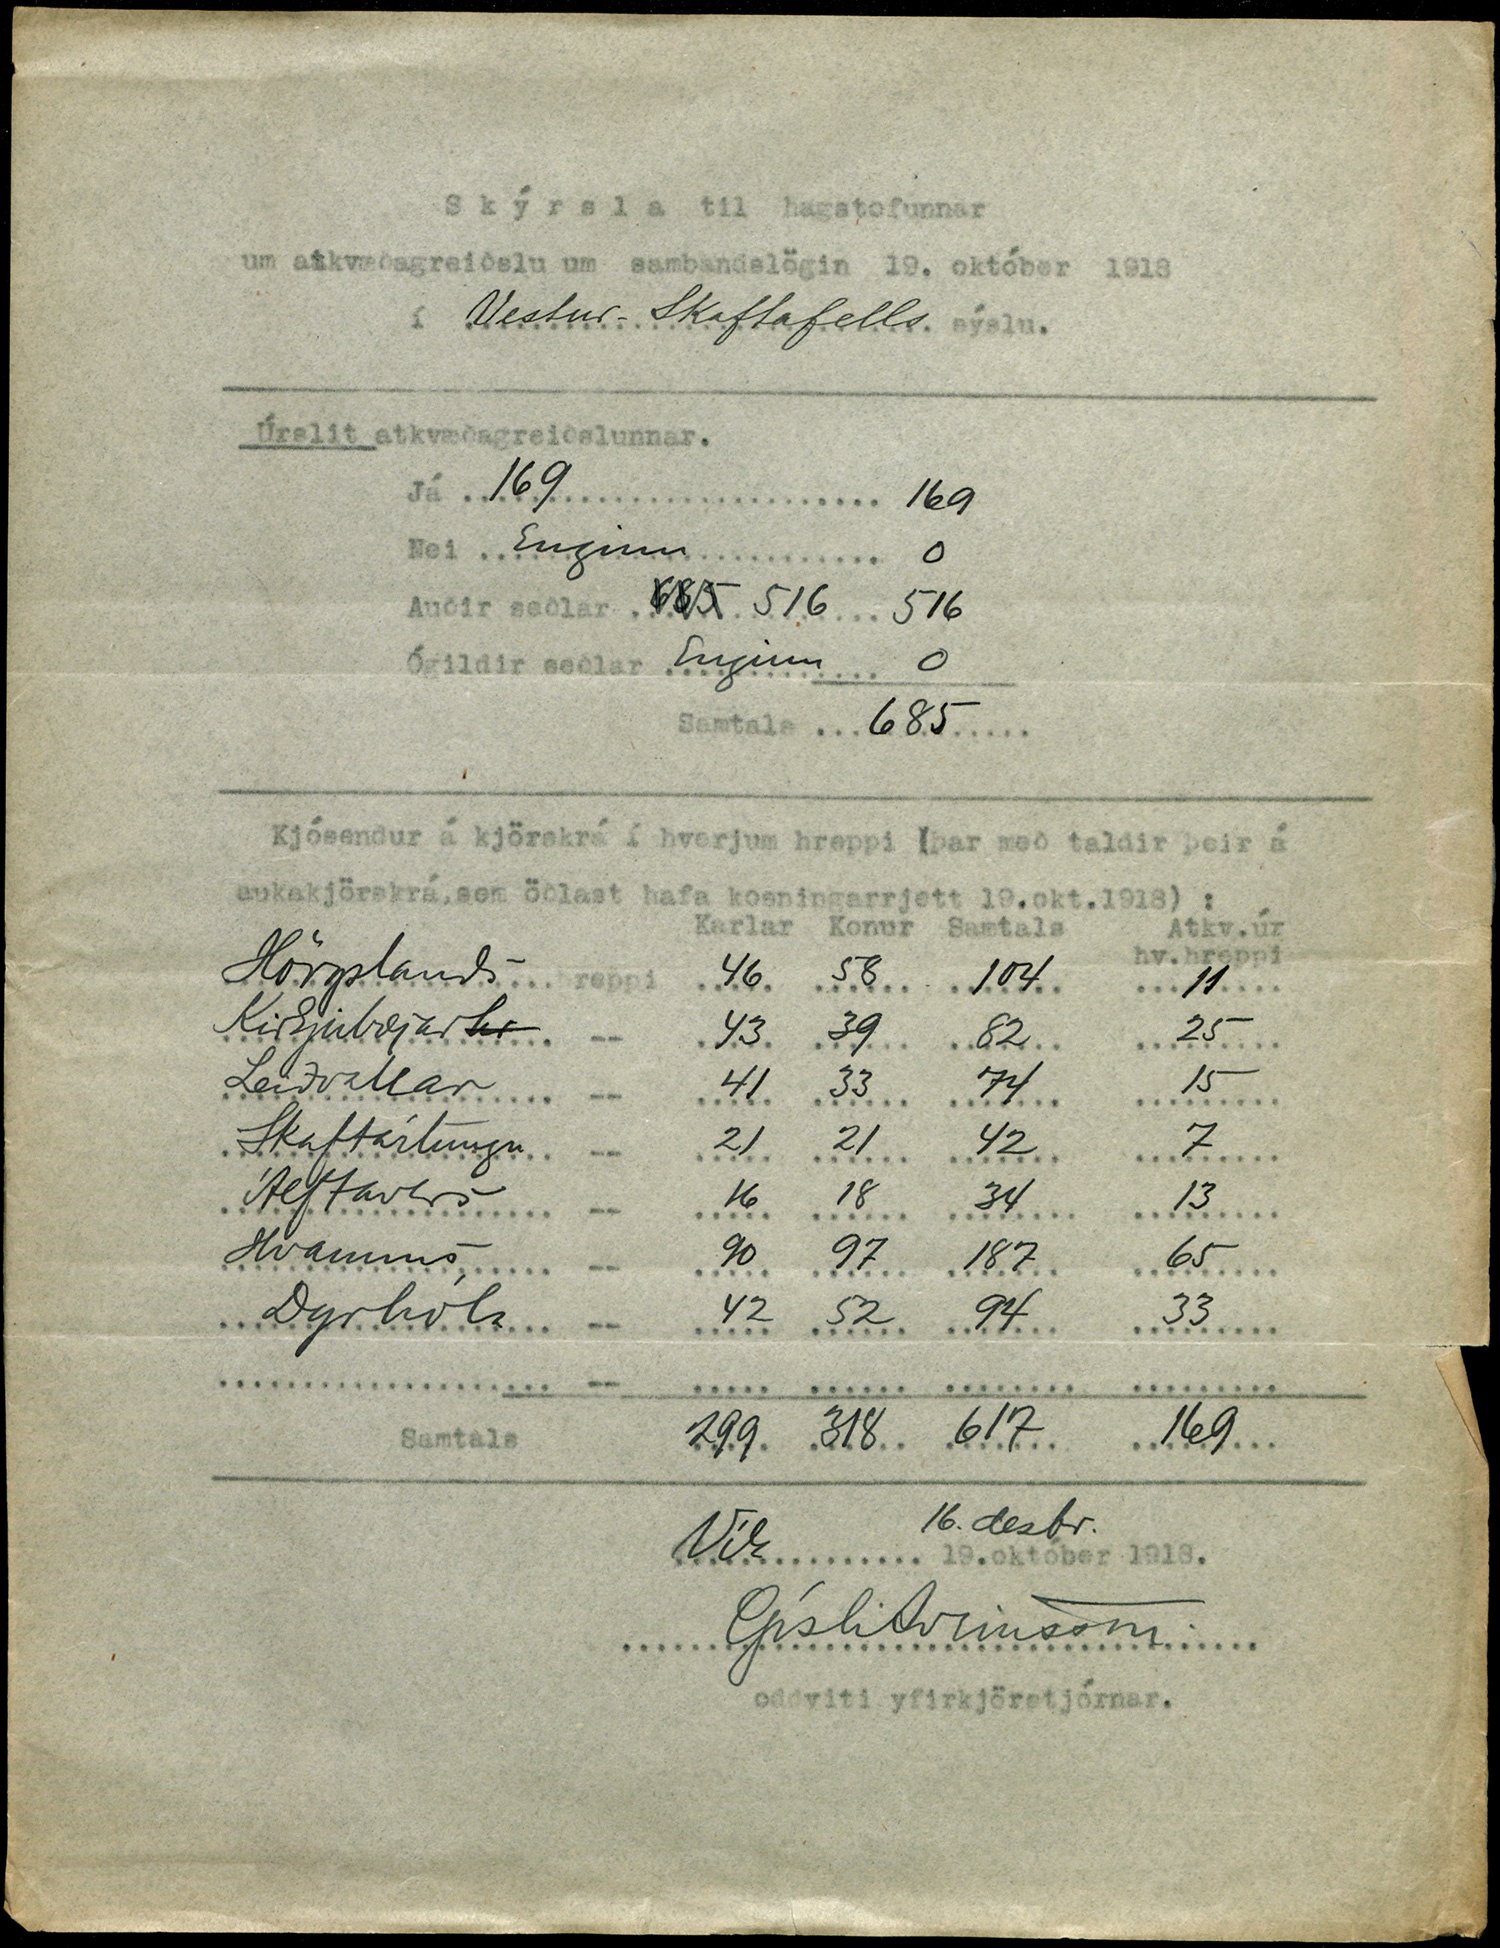 Skýrsla til hagstofunnar
um atkvæðagreiðslu um sambandslögin 19. október 1918
í Vestur-Skaftafells sýslu.
Úrslit atkvæðagreiðslunnar.
Já 169 169
Nei Enginn 0
Auðir seðlar 685 516 516
Ógildir seðlar Enginn 0
Samtals 685
Kjósendur á kjörskrá í hverjum hreppi (þar með taldir þeir á
aukakjörskrá, sem öðlast hafa kosningarrjett 19.okt.1918) :
Karlar Konur Samtals Atkv.úr
hv.hreppi
Hörgslands hreppi 46 58 104 11
Kirkjubæjar hr -- 43 39 82 25
Leiðvallar -- 41 33 74 15
Skaftártungu -- 21 21 42 7
Álftavers -- 16 18 34 13
Hvamms -- 90 97 187 65
Dyrhóla -- 42 52 94 33
--
Samtals 299 318 617 169
16. desbr.
Vík 19.október 1918.
Gísli Sveinsson
oddviti yfirkjörstjórnar.